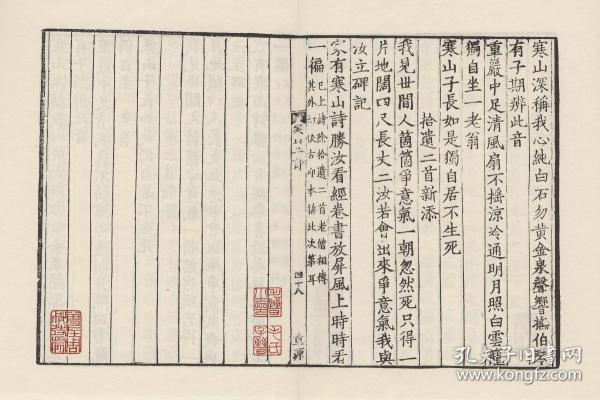 寒山深稱我心純白石勿黄金泉聲響撫伯琴
有子期辨此音
重巖中足清風扇不摇涼冷通明月照白雲籠
獨自坐一老翁
寒山子長如是獨自居不生死
拾遺二首新添
我見世間人箇箇爭意氣一朝忽然死只得一
片地闊四尺長丈二汝若會出來爭意氣我與
汝立碑記
家有寒山詩勝汝看經卷書放屏風上時時看
一徧 已上詩除拾遺二首老僧相傳
其外切依古印本排此次第耳
寒山子詩
四十八
孔夫子旧书网
www.kongfz.com